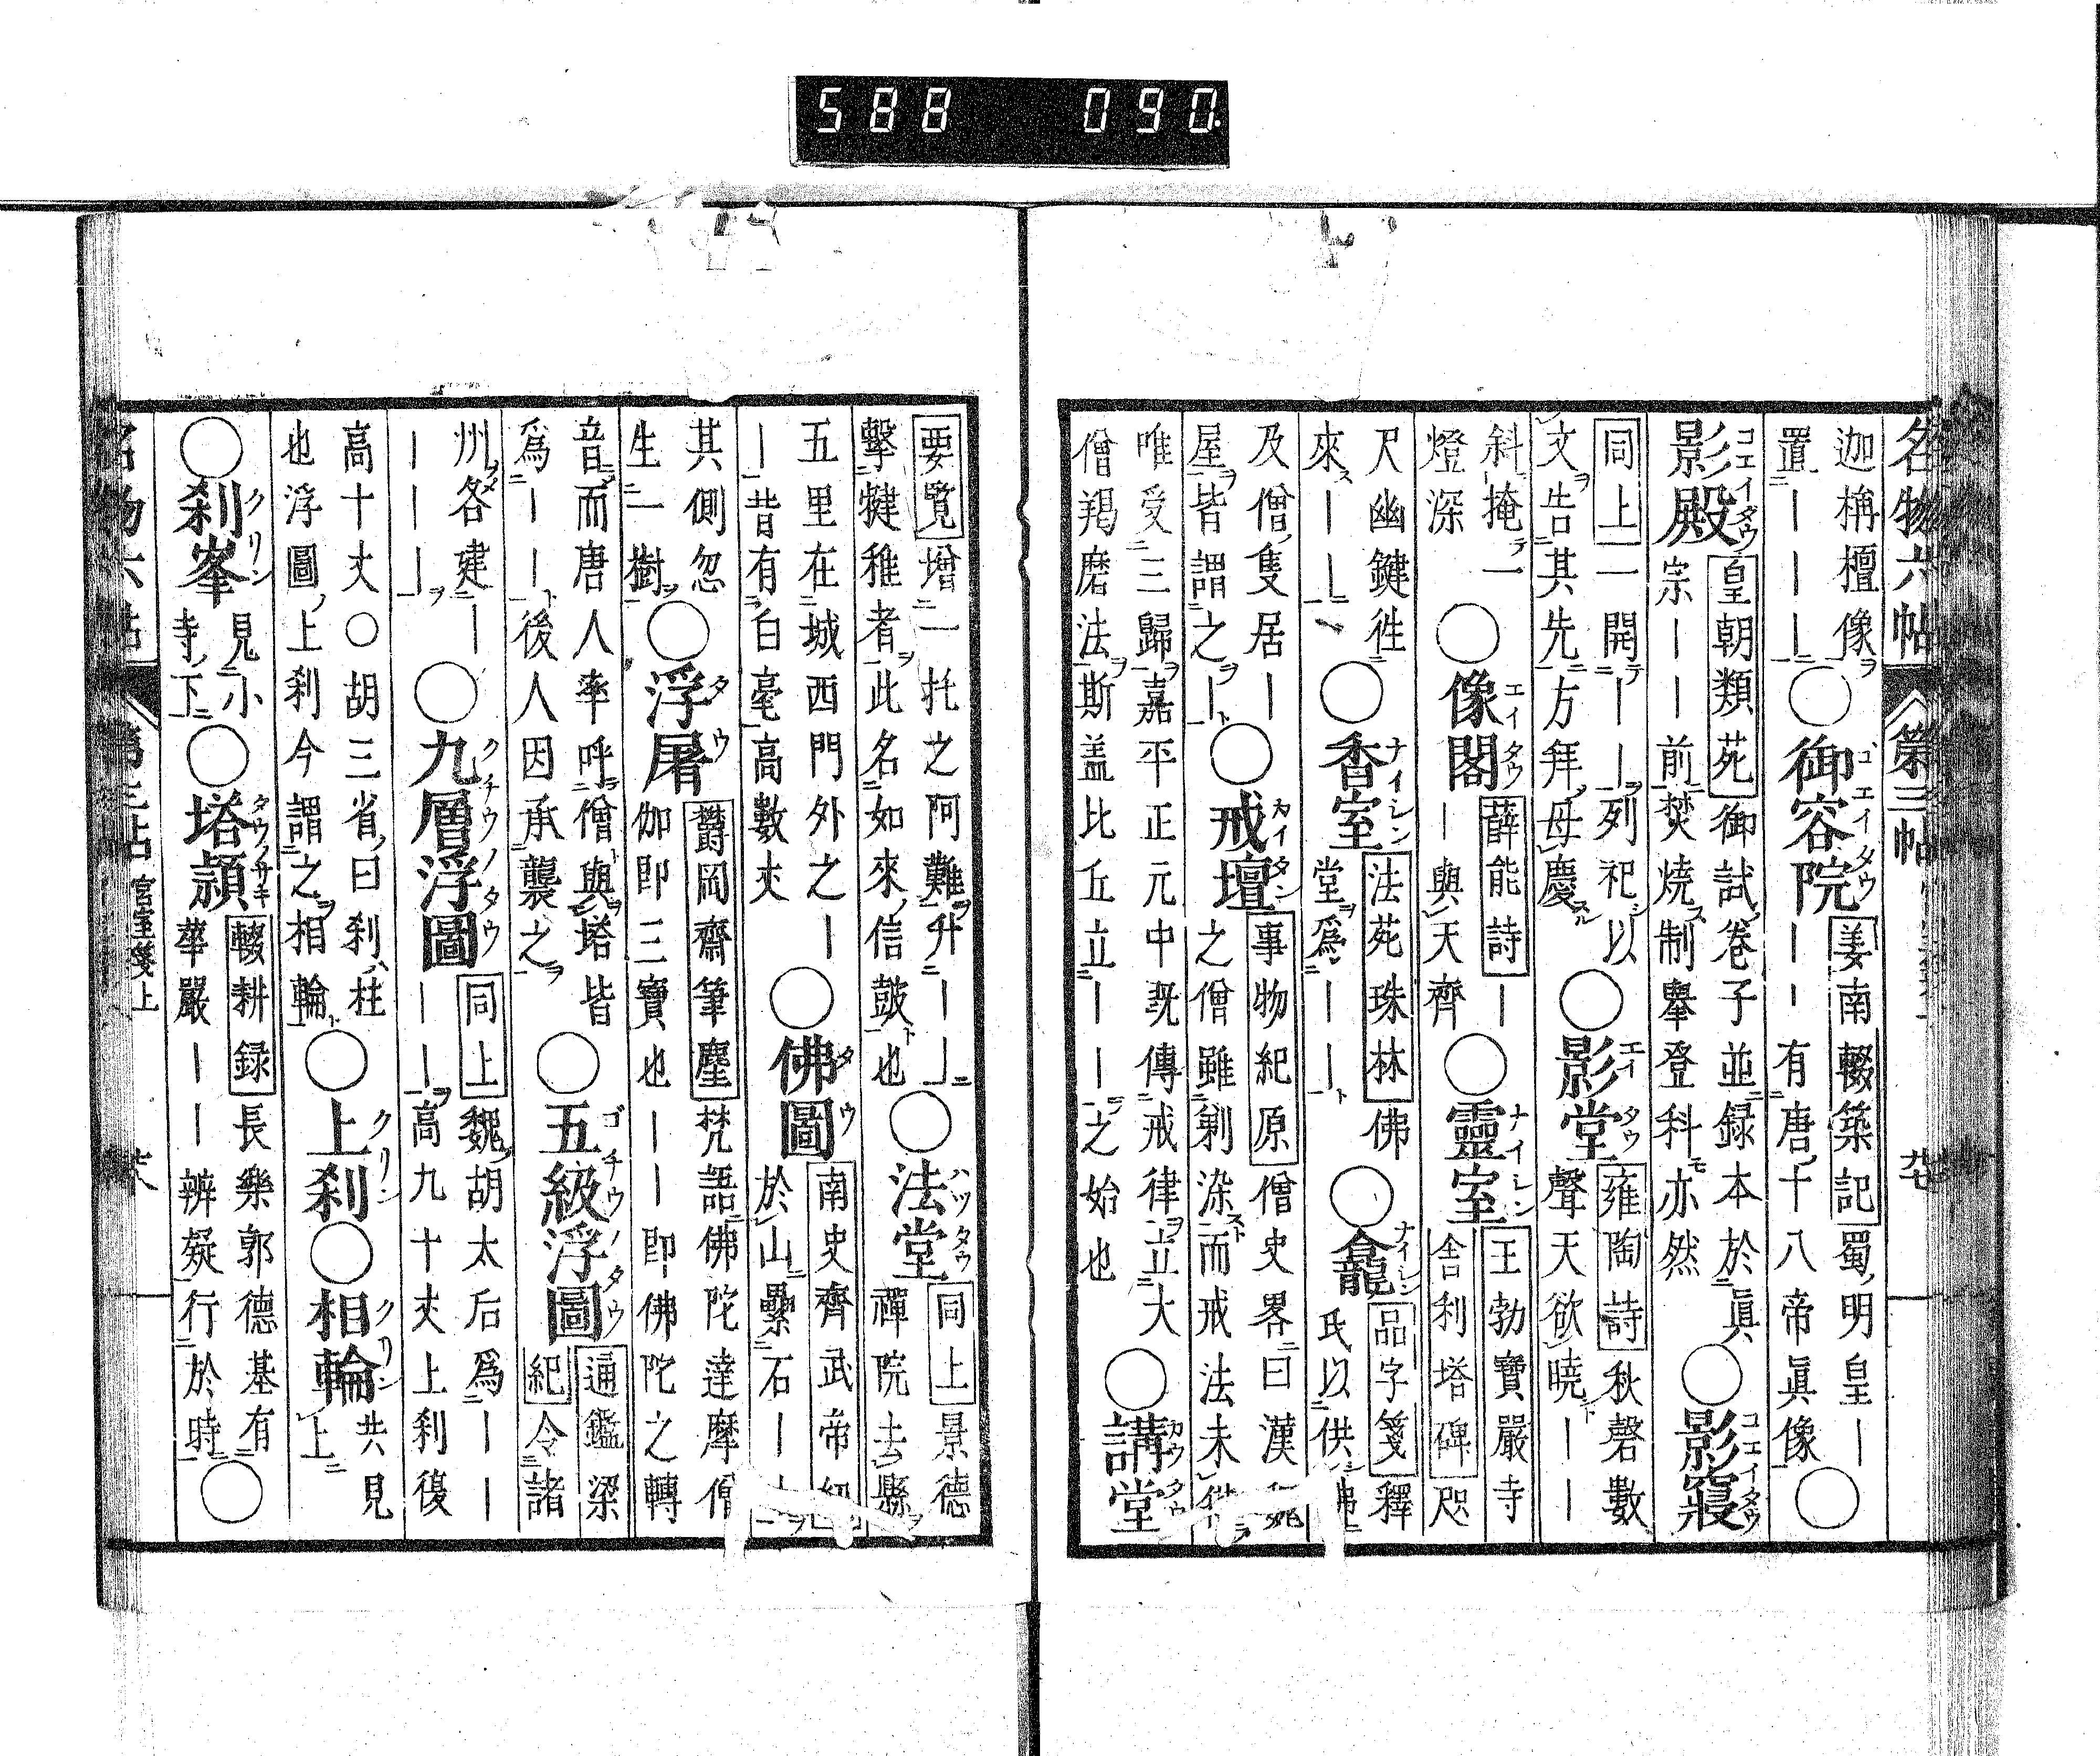 名物六帖 第三帖
迦栴檀像
置————
○御容院
姜南輟築記 蜀明皇—
——有唐十八帝眞像
○影殿
皇朝類苑 御試卷子並録本於眞
宗——前焚燒制舉登科亦然
○影寢
同上 一開——列祀以
文告其先方拜母慶
○影堂
雍陶詩 秋磬數
聲天欲曉——
斜掩一
燈深
○像閣
薛能詩 —
—與天齊
○靈室
王勃寶嚴寺
舍利塔碑 咫
尺幽鍵徃
來——
○香室
法苑珠林 佛
堂爲——
○龕
品字箋 釋
氏以供佛
及僧隻居—
屋皆謂之—
○戒壇
事物紀原 僧史畧曰漢魏
之僧雖剃染而戒法未備
唯受三歸嘉平正元中既傳戒律立大
僧羯磨法斯盖比丘立——之始也
○講堂
要覧 增一托之阿難升——
擊犍稚者此名如來信皷也
○法堂
同上 景德
禪院去縣
五里在城西門外之—
—昔有白毫高數丈
○佛圖
南史齊武帝紀
於山纍石—
其側忽
生一樹
○浮屠
欝岡齋筆塵 梵語佛陀達摩僧
伽即三寶也——即佛陀之轉
音而唐人率呼僧與塔皆
爲——後人因承襲之
○五級浮圖
通鑑梁
紀 令諸
州各建—
———
○九層浮圖
同上 魏胡太后爲——
——高九十丈上刹復
高十丈○胡三省曰刹柱
也浮圖上刹今謂之相輪
○上刹○相輪
共見
上
○刹峯
見小
寺下
○塔顙
輟耕録 長樂郭德基有
華嚴——辨疑行於時
○
名物六帖 第三帖 宮室箋上 廿八
588 090